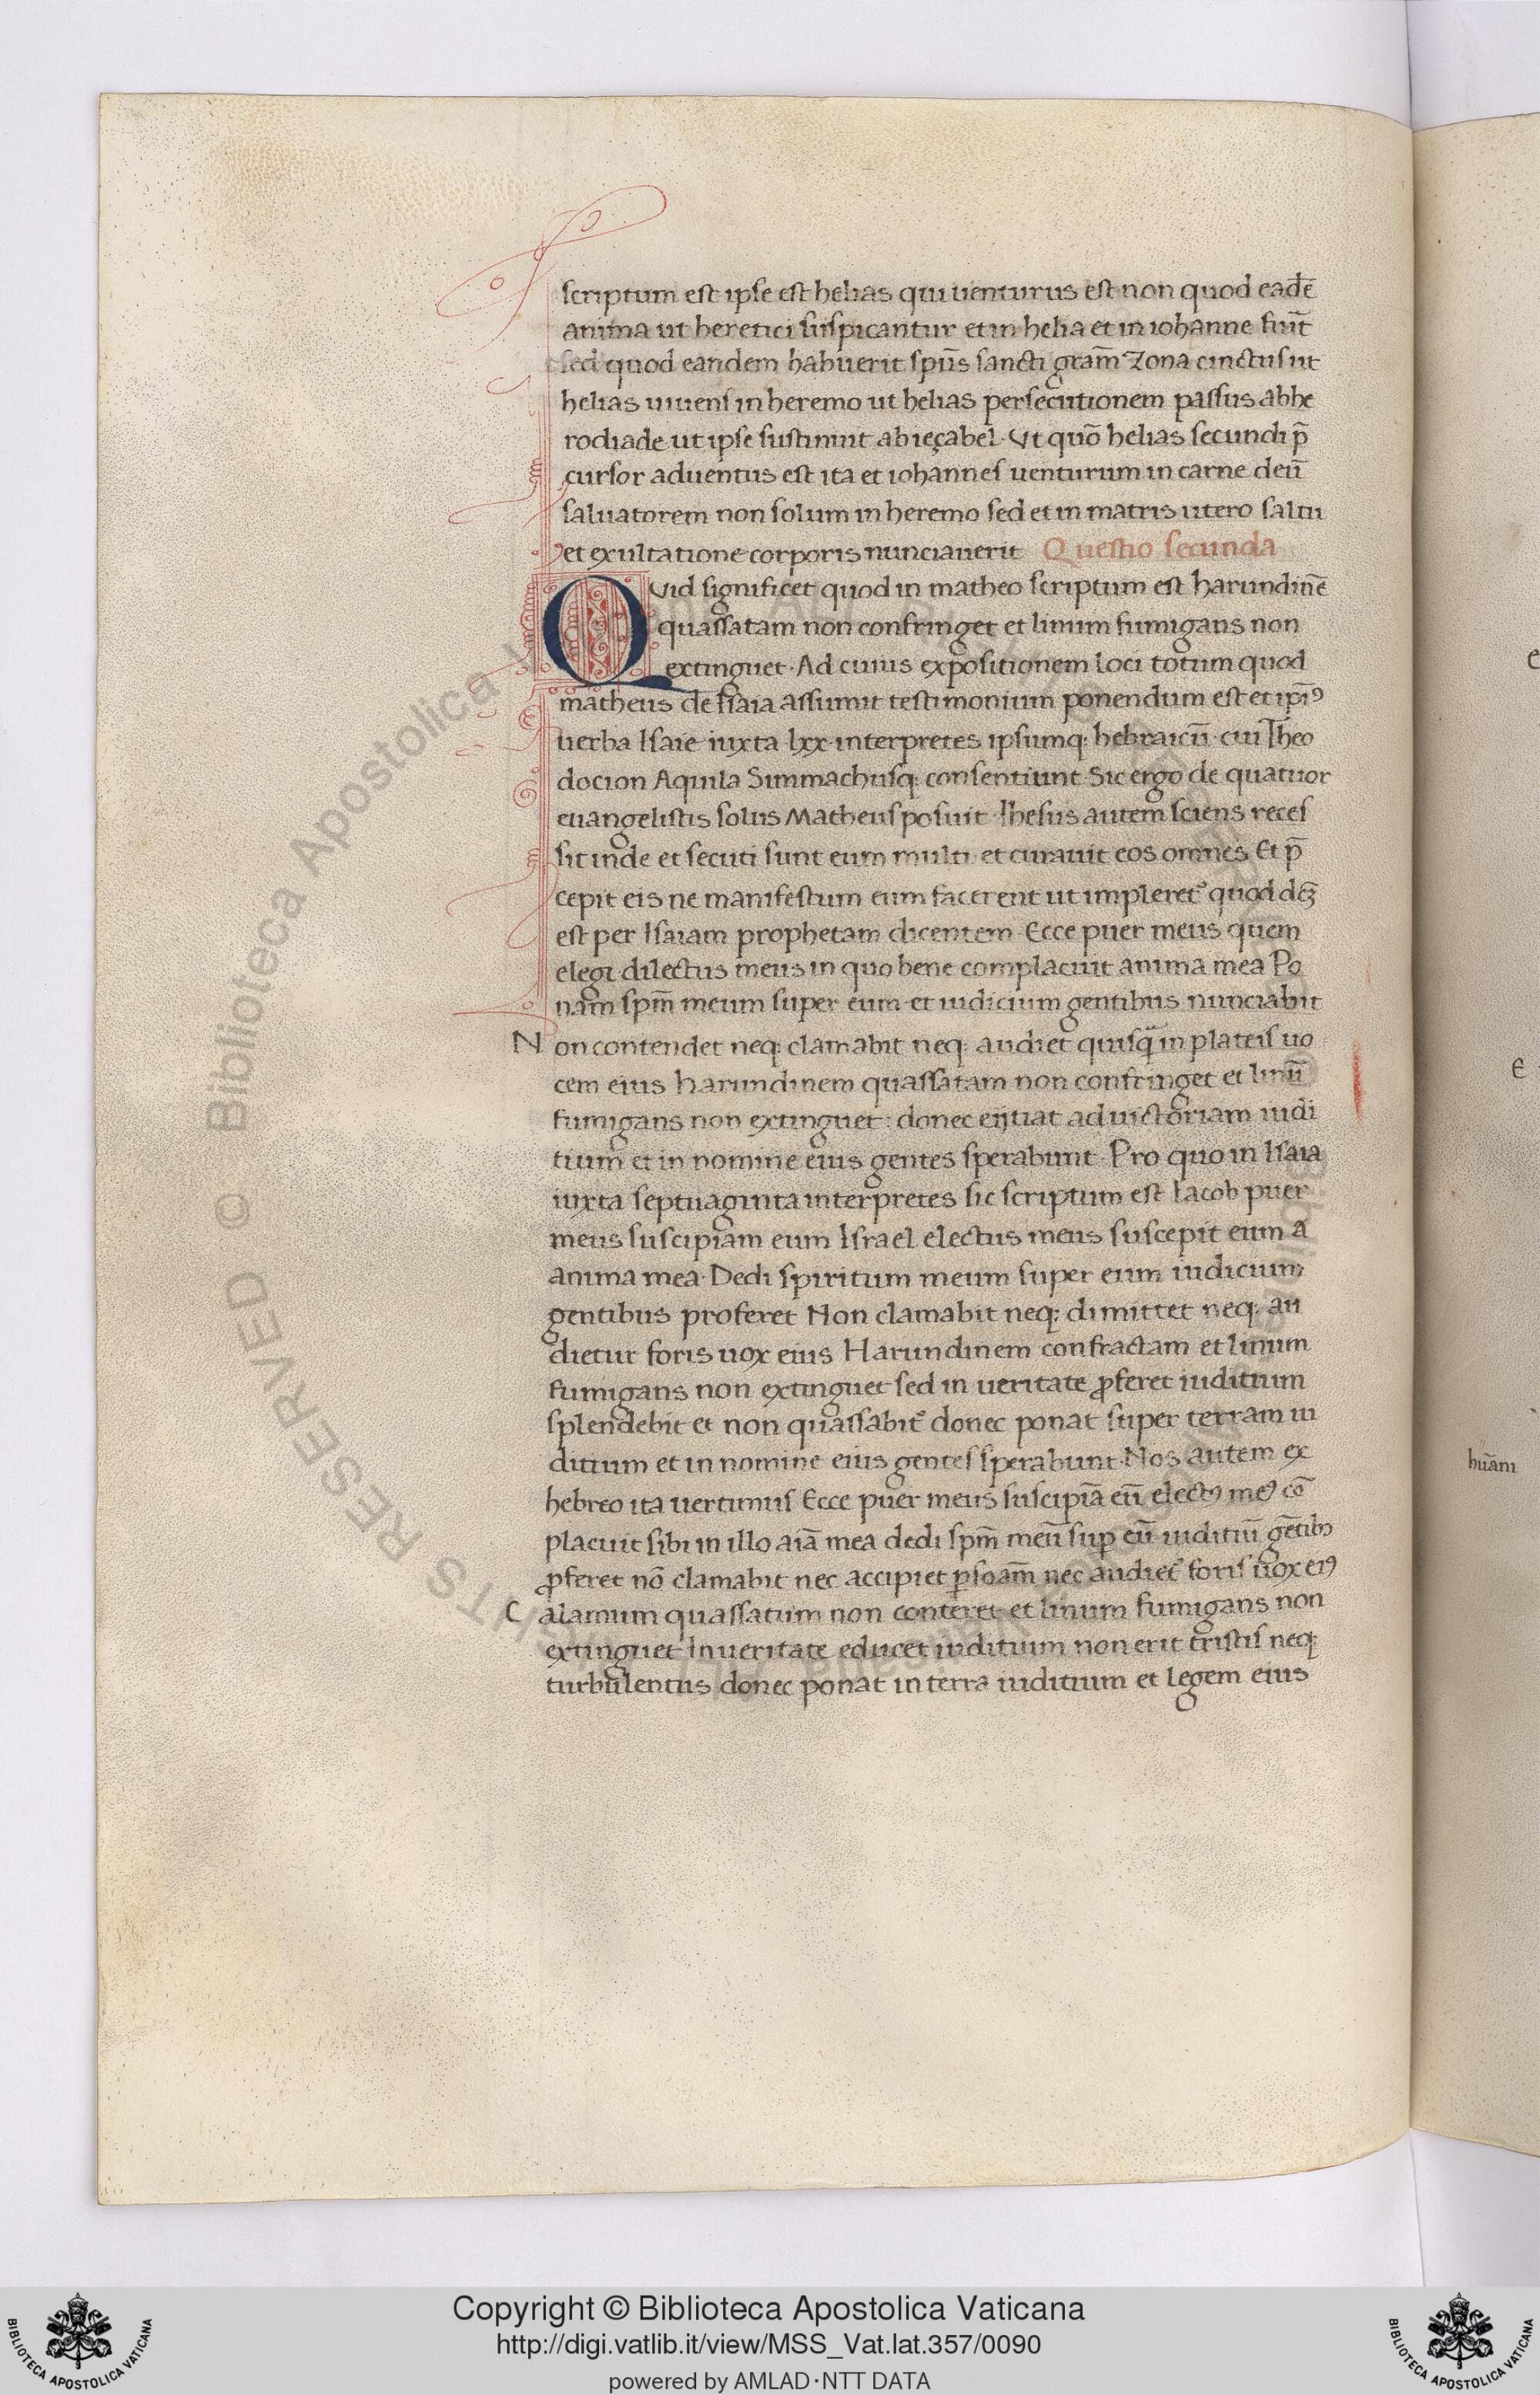 scriptum est ipse est helias qui uenturus est non quod eadē
anima ut heretici suspicantur et in helia et in iohanne fuit̄
sed quod eandem habuerit spūs sancti gr̄am Zona cinctus ut
helias uiuens in heremo ut helias persecutionem passus ab he
rodiade ut ipse sustinuit ab ieçabel· Vt quō helias secundi p̄
cursor aduentus est ita et iohannes uenturum in carne deū
saluatorem non solum in heremo sed et in matris utero saltu
et exultatione corporis nunciauerit Questio secunda
Quid significet quod in matheo scriptum est harundinē
quassatam non confringet et linum fumigans non
extinguet· Ad cuius expositionem loci totum quod
matheus de Isaia assumit testimonium ponendum est et ip̄iꝰ
uerba Isaie iuxta lxx· interpretes ipsumq: hebraicū· cui Theo
docion Aquila Simmachusq: consentiunt· Sic ergo de quatuor
euangelistis solus Matheus posuit· Ihesus autem sciens reces
sit inde et secuti sunt eum multi et curauit eos omnes Et p̄
cepit eis ne manifestum eum facerent ut impleret᷑ quod dc̄ꝫ
est per Isaiam prophetam dicentem· Ecce puer meus quem
elegi dilectus meus in quo bene complacuit anima mea Po
nam sp̄m meum super eum· et iudicium gentibus nunciabit
Non contendet neq: clamabit neq: audiet quisq̄ in plateis uo
cem eius harundinem quassatam non confringet et linū
fumigans non extinguet: donec eijuat ad uictoriam iudi
tium et in nomine eius gentes sperabunt· Pro quo in Isaia
iuxta septuaginta interpretes sic scriptum est Iacob puer
meus suscipiam eum Israel electus meus suscepit eum a
anima mea· Dedi spiritum meum super eum iudicium
gentibus proferet Non clamabit neq: dimittet neq: au
dietur foris uox eius Harundinem confractam et linum
fumigans non extinguet sed in ueritate ꝓferet iuditium
splendebit et non quassabit᷑ donec ponat super terram iu
ditium et in nomine eius gentes sperabunt· Nos autem ex
hebreo ita uertimus Ecce puer meus suscipiā eū electꝰ meꝰ cō
placuit sibi in illo aīa mea dedi sp̄m meū suꝑ eū iuditiū gētibꝰ
ꝓferet nō clamabit nec accipiet ꝑsoām nec audiet᷑ foris uox eiꝰ
Calamum quassatum non conteret et linum fumigans non
extinguet In ueritate educet iuditium non erit tristis neq:
turbulentus donec ponat in terra iuditium et legem eius
huām
© Biblioteca Apostolica
RESERVED
Copyright © Biblioteca Apostolica Vaticana
http://digi.vatlib.it/view/MSS_Vat.lat.357/0090
powered by AMLAD·NTT DATA
BIBLIOTECA APOSTOLICA VATICANA
BIBLIOTECA APOSTOLICA VATICANA